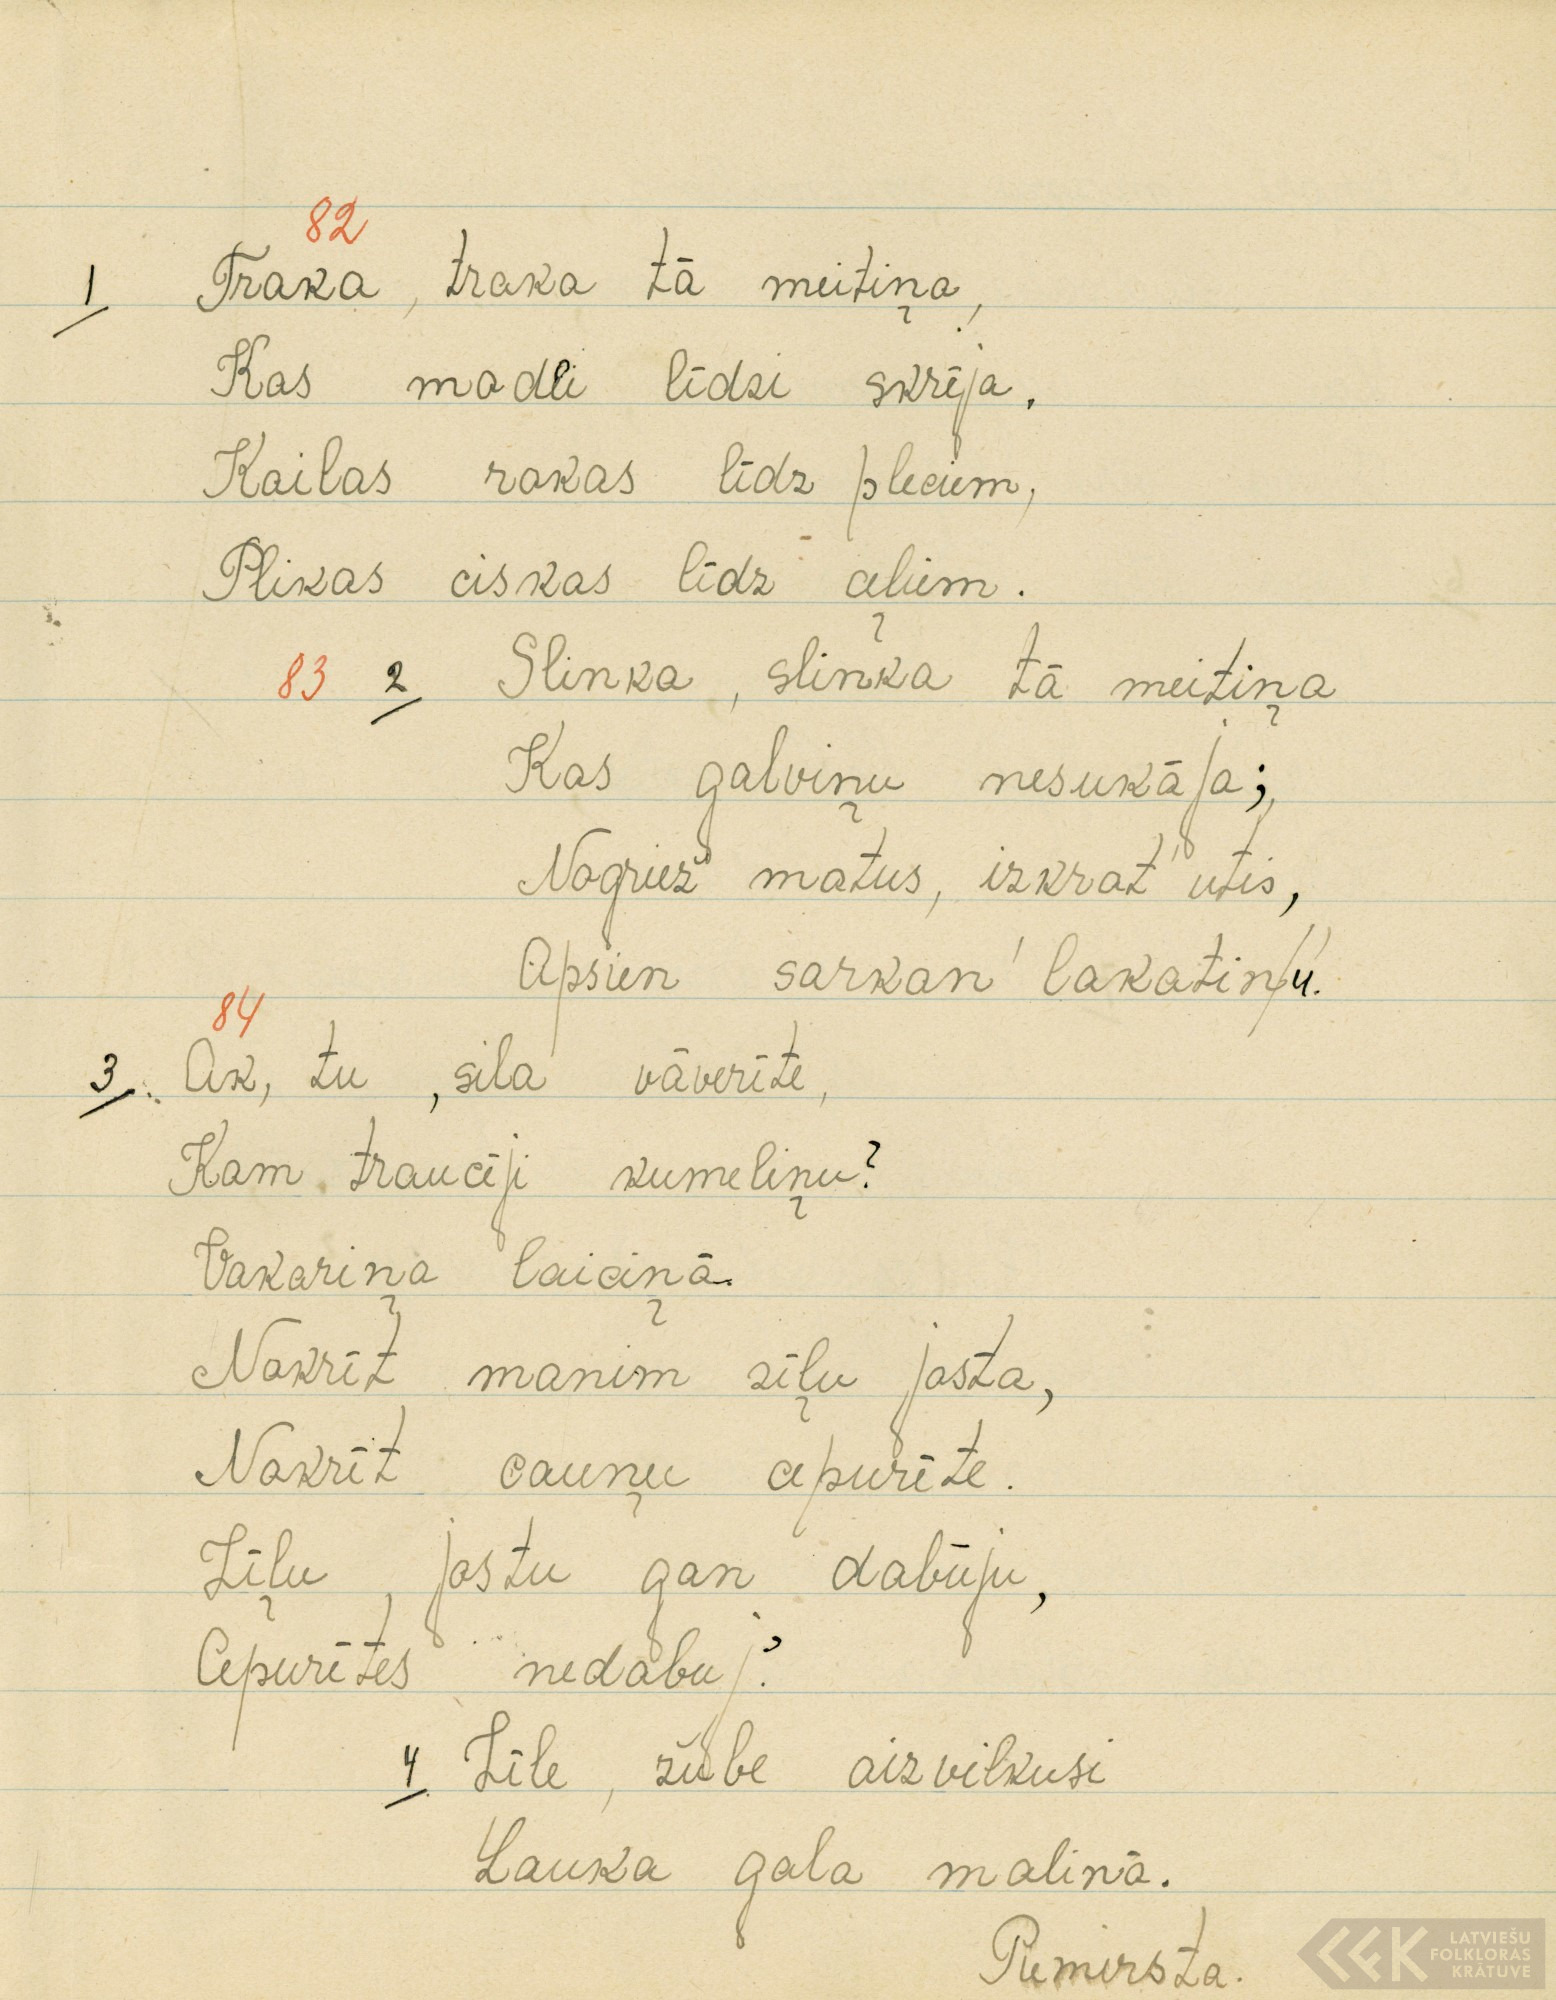 82
1 Traka, traka tā meitiņa,
Kas modei līdzi skrēja,
Kailas rokas līdz pleciem,
Plikas ciskas līdz ceļiem.
83 2 Slinka, slinka tā meitiņa
Kas galviņu nesukāja;
Nogriež matus, izkrat' utis,
Apsien sarkan' lakatiņ'u.
84
3 Ak, tu, sila vāverīte,
Kam traucēji kumeliņu?
Vakariņa laiciņā.
Nokrīt manim zīļu josta,
Nokrīt cauņu cepurēte.
Zīļu jostu gan dabūju,
Cepurītes nedabuj'.
4 Zīle, žūbe aizvilkusi
Lauka gala malinā.
Piemirsta.
LATVIEŠU
FOLKLORAS
KRĀTUVE